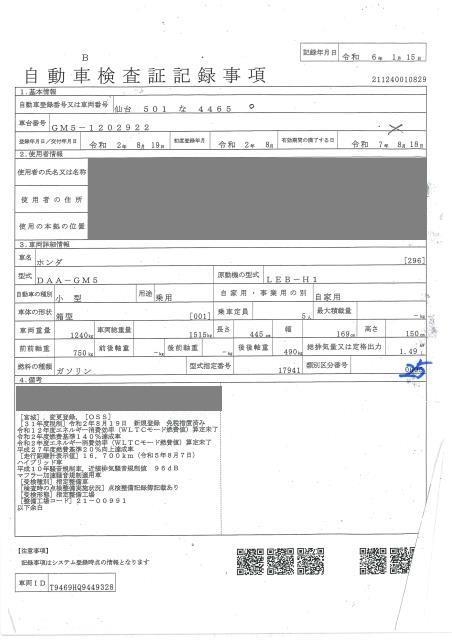 B
記録年月日 令和 6年 1月15日
自動車検査証記録事項
211240010829
1.基本情報
自動車登録番号又は車両番号 仙台 501 な 4465
車台番号 GM5-1202922
登録年月日/交付年月日 令和 2年 8月19日 初度登録年月 令和 2年 8月 有効期間の満了する日 令和 7年 8月18日
2.使用者情報
使用者の氏名又は名称
使用者の住所
使用の本拠の位置
3.車両詳細情報
車名 ホンダ [296]
型式 DAA-GM5 原動機の型式 LEB-H1
自動車の種別 小型 用途 乗用 自家用・事業用の別 自家用
車体の形状 箱型 [001] 乗車定員 5人 最大積載量 -kg
車両重量 1240kg 車両総重量 1515kg 長さ 445cm 幅 169cm 高さ 150cm
前前軸重 750kg 前後軸重 -kg 後前軸重 -kg 後後軸重 490kg 総排気量又は定格出力 1.49
燃料の種類 ガソリン 型式指定番号 17941 類別区分番号
4.備考
[宮城],変更登録,[OSS]
[31年度税制]令和2年8月19日 新規登録 免税措置済み
令和12年度エネルギー消費効率(WLTCモード燃費値)算定未了
令和2年度燃費基準140%達成車
令和2年度エネルギー消費効率(WLTCモード燃費値)算定未了
平成27年度燃費基準20%向上達成車
[走行距離計表示値]16,700km(令和5年8月7日)
ハイブリッド車
平成10年騒音規制車,近接排気騒音規制値 96dB
マフラー加速騒音規制適用車
[受検種別]指定整備車
[検査時の点検整備実施状況]点検整備記録簿記載あり
[受検形態]指定整備工場
[整備工場コード]21-00991
以下余白
【注意事項】
記録事項はシステム登録時点の情報となります
車両ID T9469HQ9449328